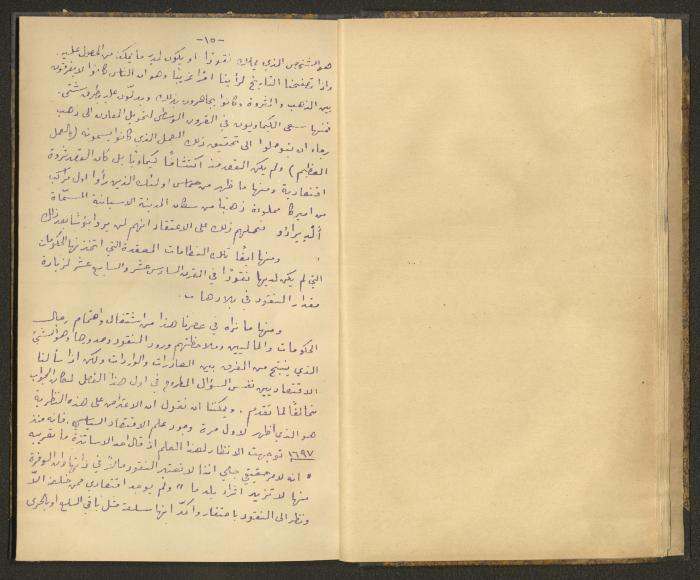 -١٥-
هو الشخص الذي يملك نقودًا او يكون لديه ما يمكنه من الحصول عليه.
واذا تصفحنا التاريخ لرأينا امرًا غريبًا وهو ان الناس كانوا لا يفرقون
بين الذهب والثروة وكانوا يجاهرون بذلك ويدلّون عليه بطرق شتى.
فمنها سعى الكيماويون في القرون الوسطى لتحويل المعادن الى ذهب
رجاء ان يتوصلوا الى تحقيق ذلك العمل الذي كانوا يسمونه (بالعمل
العظيم) ولم يكن القصد منه اكتشافًا كيماويًا بل كان القصد ثروة
اقتصادية ومنها ما ظهر من حماس اولئك الذين رأوا اول مراكب
من اميركا مملوءة ذهبًا من سكان المدينة الاسبانية المسمّاة
ألديرادو فحملهم ذلك على الاعتقاد انهم لن يروا بؤسًا بعد ذلك
ومنها ايضًا تلك النظامات المعقدة التي اتخذتها الحكومات
التي لم يكن لديها نقودًا في القرن السادس عشر والسابع عشر لزيادة
مقدار النقود في بلادها.
ومنها ما نراه في عصرنا هذا من اشتغال واهتمام رجال
الحكومات والماليين وملاحظتهم ورود النقود وصدورها وهو الشئ
الذي ينتج من الفرق بين الصادرات والواردات ولكن اذا سألنا
الاقتصاديين نفس السؤال المطروح في اول هذا الفصل لكان الجواب
مخالفًا لما تقدم. ويمكننا ان نقول ان الاعتراض على هذه النظرية
هو الذي اظهر لاول مرة وجود علم الاقتصاد السياسي. فانه منذ
١٦٩٧ توجهت الانظار لهذا العلم اذ قال احد الاساتذة ما تقريبه
" انه لامر حقيقي جلي اننا لا نعتبر النقود مالاً في ذاتها وان الوفرة
منها لا تزيد اثراء بلد ما " ولم يوجد اقتصادي من خلفه الاّ
ونظر الى النقود باحتقار واكدّ انها سلعة مثل باقي السلع او بالحرى